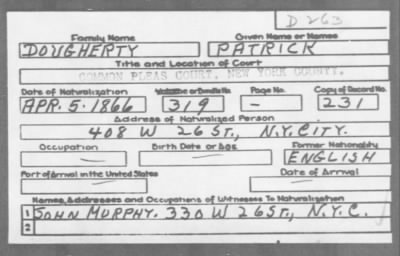 D 263
Family Name Given Name or Names
DOUGHERTY PATRICK
Title and Location of Court
COMMON PLEAS COURT, NEW YORK COUNTY.
Date of Naturalization Volume or Bundle No. Page No. Copy of Record No.
APR. 5. 1866 319 - 231
Address of Naturalized Person
408 W 26 ST., N.Y. CITY.
Occupation Birth Date or Age Former Nationality
ENGLISH
Port of Arrival in the United States Date of Arrival
Names, Addresses and Occupations of Witnesses To Naturalization
1 JOHN MURPHY. 330 W 26 ST., N.Y.C.
2